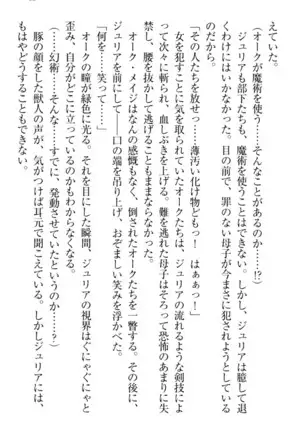 えていた。
（オークが魔術を使う……そんなことがあるのか……!?）
ジュリアも部下たちも、魔術を使うことはできない。しかし、ジュリアは臆して退
くわけにはいかなかった。目の前で、罪のない母子が今まさに犯されようとしている
のだから。
「その人たちを放せっ……薄汚い化け物どもっ！　はぁぁっ！」
女を犯すことに気を取られていたオークたちは、ジュリアの流れるような剣技によ
って次々に斬られ、血しぶきを上げて倒れる。難を逃れた母子はそろって恐怖のあまりに失
禁し、腰を抜かして逃げることもままならなかった。
オーク・メイジはなんの感慨もなく、倒されたオークたちを一瞥する。その後に、
ジュリアを前にして――口の端を吊り上げ、おぞましい笑みを浮かべた。
「何を……笑ってっ……！」
オークの瞳が緑色に光る。それを目にした瞬間、ジュリアの視界はぐにゃぐにゃと
歪み、自分がどこに立っているのかもわからなくなる。
（……幻術……そんな……すでに、発動させていたというのか……）
豚の顔をした獣人の声が、気がつけば耳元で聞こえている。しかしジュリアには、
もはやどうすることもできない。